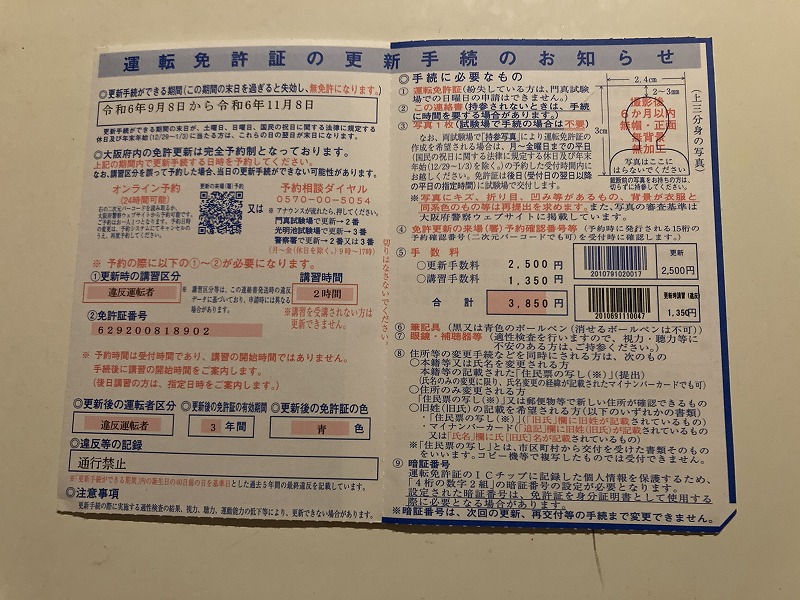 運転免許証の更新手続のお知らせ
◎更新手続ができる期間(この期間の末日を過ぎると失効し、無免許になります。)
令和6年9月8日から令和6年11月8日
更新手続ができる期間の末日が、土曜日、日曜日、国民の祝日に関する法律に規定する
休日及び年末年始(12/29〜1/3)に当たるときは、これらの日の翌日が末日になります。
◎大阪府内の免許更新は完全予約制となっております。
上記の期間内で更新手続する日時を予約してください。
なお、講習区分を誤って予約した場合、当日の更新手続ができない可能性があります。
オンライン予約
(24時間可能)
右の二次元バーコードを読み取るか、
大阪府警察ウェブサイトから予約可能です。
更新の来場(署)予約
又は
予約相談ダイヤル
0570-00-5054
※ アナウンスが流れたら、押してください。
門真試験場で更新→2番
光明池試験場で更新→3番
警察署で更新→2番又は3番
(月〜金(休日を除く。)9時〜17時)
※ 予約の際に以下の①〜②が必要になります。
①更新時の講習区分
違反運転者
※ 講習区分等は、この連絡書発送時の違反
データに基づいており、申請時には異なる
場合があります。
講習時間
2時間
※講習を受講されない方は
更新できません。
②免許証番号
629200818902
※ 予約時間は受付時間であり、講習の開始時間ではありません。
手続後に講習の開始時間をご案内します。
(後日講習の方は、指定日時をご案内します。)
◎更新後の運転者区分
違反運転者
◎更新後の免許証の有効期間
3 年間
◎更新後の免許証の色
青 色
◎違反等の記録
通行禁止
※「更新手続ができる期間」内の誕生日の40日前の日を基準日とした過去5年間の最終違反を記載しています。
◎注意事項
更新手続の際に実施する適性検査の結果、視力、聴力、運動能力の低下等により、更新できない場合があります。
切りはなさないでください。
◎手続に必要なもの
① 運転免許証(紛失している方は、門真試験
場での日曜日の申請はできません。)
② この連絡書(持参されないときは、手続
に時間を要する場合があります。)
③ 写真1枚(試験場で手続の場合は不要)
なお、両試験場で「持参写真」により運転免許証の
作成を希望される場合は、月〜金曜日までの平日
(国民の祝日に関する法律に規定する休日及び年末
年始(12/29〜1/3)を除く。)の予約した受付時間内に
お越しください。免許証は後日(受付日の翌日以降
の平日の指定時間)に試験場で交付します。
2.4cm
2〜3mm
3cm
撮影後
6か月以内
無帽・正面
無背景
無加工
写真はここに
はらないでください
裁断前の写真をお持ちの方は、
切らずに持参してください。
(上三分身の写真)
※写真にキズ、折り目、凹み等があるもの、背景が衣服と
同系色のもの等は再提出を求めます。また、写真の審査基準は
大阪府警察ウェブサイトに掲載しています。
④ 免許更新の来場(署)予約確認番号等 (予約時に発行される15桁の
予約確認番号(二次元バーコードでも可)を受付時に確認します。)
⑤ 手 数 料
○更新手数料 2,500 円
○講習手数料 1,350 円
合 計 3,850 円
2010791020017
更新
2,500円
2010691110047
更新時講習(違反)
1,350円
⑥ 筆記具 (黒又は青色のボールペン(消せるボールペンは不可))
⑦ 眼鏡・補聴器等 (適性検査を行いますので、視力・聴力等に
不安のある方は、ご持参ください。)
⑧ 住所等の変更手続なども同時にされる方は、次のもの
○本籍等又は氏名を変更される方
本籍等の記載された「住民票の写し(※)」(提出)
(氏名のみの変更に限り、氏名変更の経緯が記載されたマイナンバーカードでも可)
○住所のみ変更される方
「住民票の写し(※)又は郵便物等で新しい住所が確認できるもの
○旧姓(旧氏)の記載を希望される方(以下のいずれかの書類)
・「住民票の写し(※)」(「旧氏」欄に旧氏が記載されているもの)
・マイナンバーカード(「追記」欄に旧氏(旧氏)が記載されているもの
又は「氏名」欄に氏(旧氏)名が記載されているもの)
※「住民票の写し」とは、市区町村から交付を受けた書類そのもの
をいいます。コピー機等で複写したものでは受付できません。
⑨ 暗証番号
運転免許証のICチップに記録した個人情報を保護するため、
「4桁の数字2組」の暗証番号の設定が必要となります。
設定された暗証番号は、免許証を身分証明書として使用する
際に必要となる場合があります。
※暗証番号は、次回の更新、再交付等の手続まで変更できません。